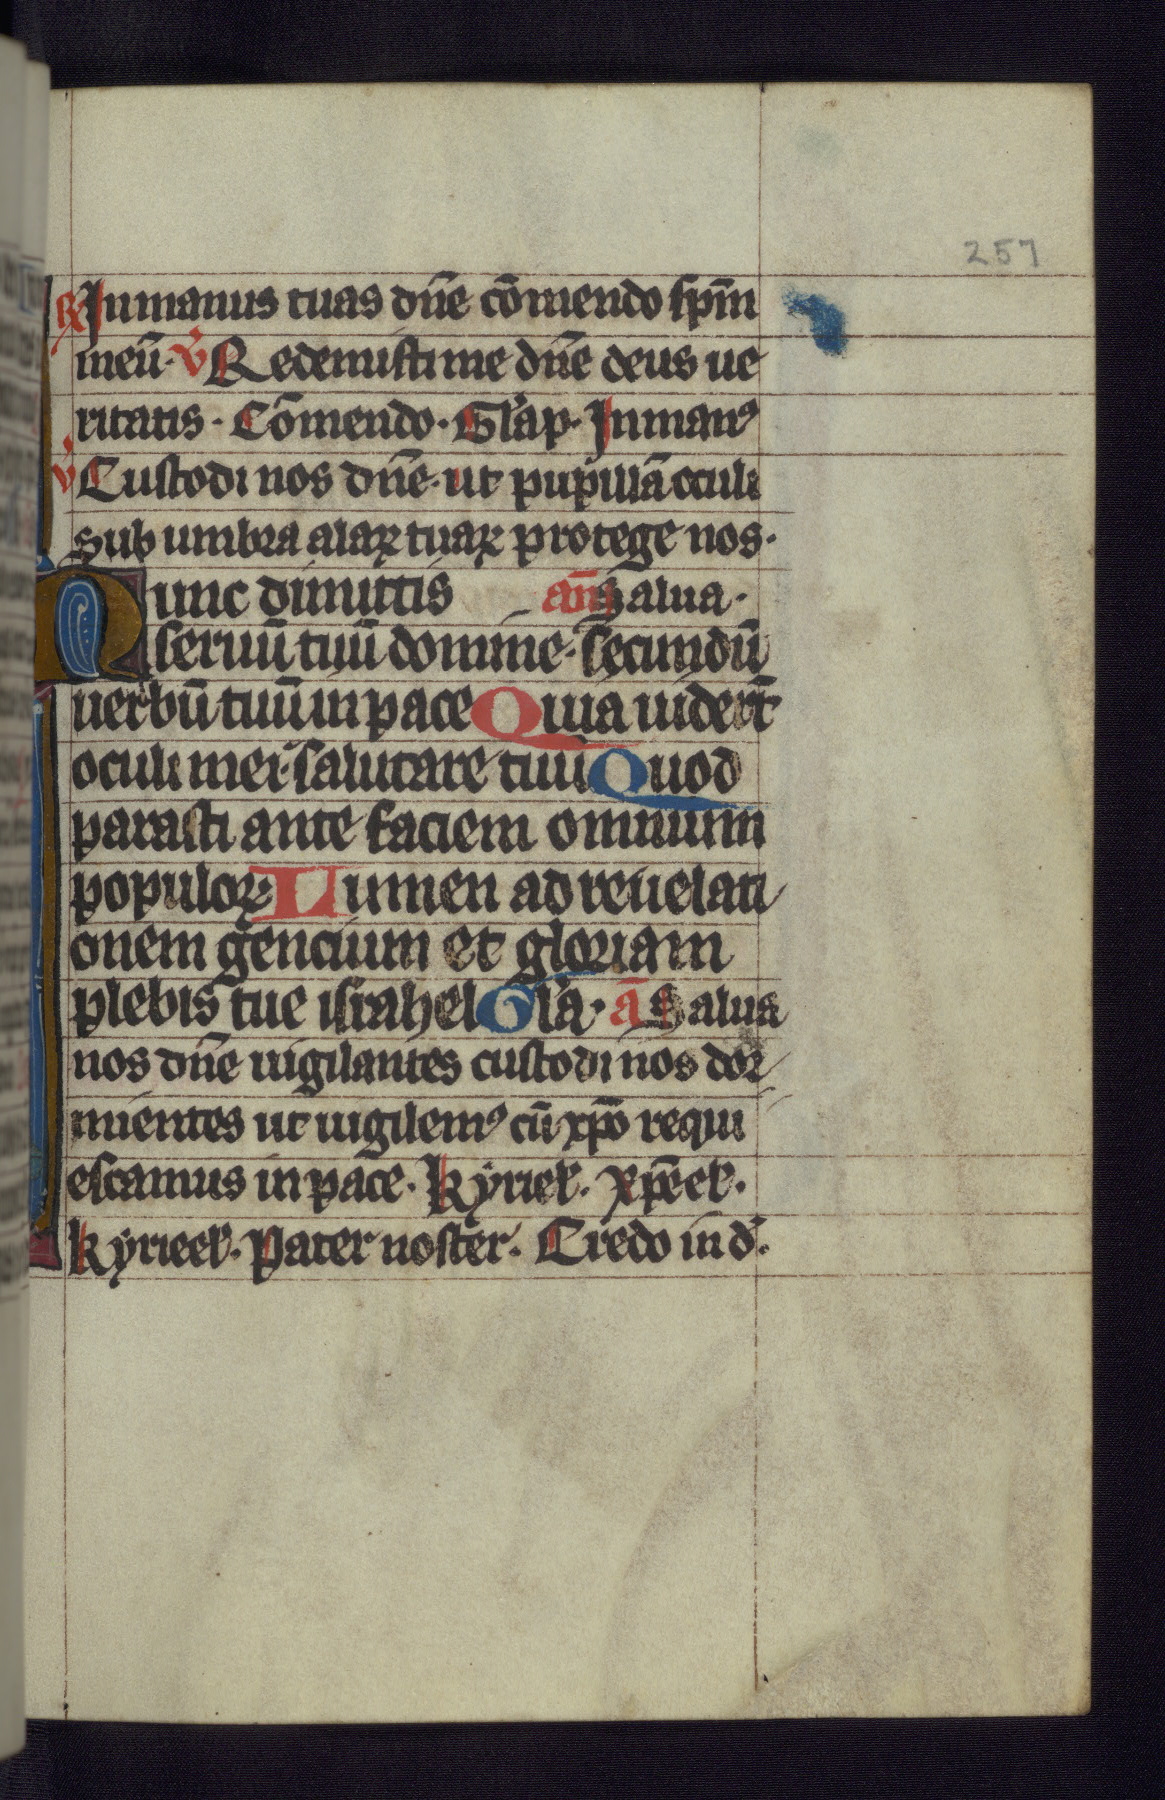 257
℟ In manus tuas dn̄e cōmendo sp̄m
meū. v̄ Redemisti me dn̄e deus ue
ritatis. Cōmendo. Gl'a p. In man⁹
v̄ Custodi nos dn̄e. ut pupillā oculi
sub umbra alaꝝ tuaꝝ protege nos.
Nunc dimittis an̄ Salua.
seruū tuū domine. secundū
uerbū tuū in pace Quia uider̄t
oculi mei. salutare tuū Quod
parasti ante faciem omnium
populoꝝ. Lumen ad reuelati
onem gencium et gloriam
plebis tue israhel Gl'a. ā Salua
nos dn̄e uigilantes custodi nos dor
mientes ut uigilem⁹ cū xp̄o requi
escamus in pace. Kyriel'. Xp̄eel'.
Kyrieel'. Pater noster. Credo in d'.